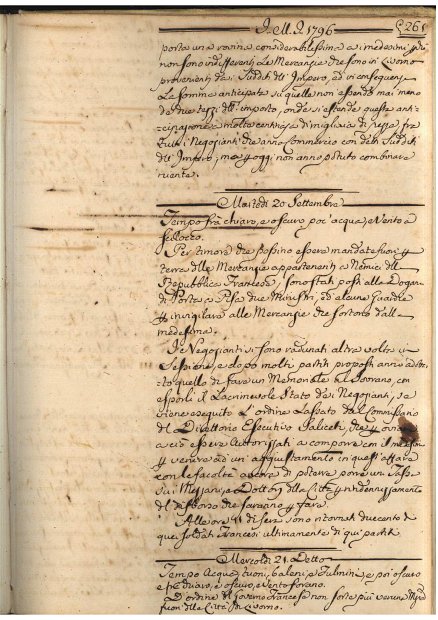 I. M. I. 1796
261
porta una rovina considerabilissima a i medesimi,
non sono indifferenti Le Mercanzie che sono in Livorno
provenienti da i Sudditi dell' Impero, ed in conseguenza
Le somme anticipate su quelle non essendo mai meno
de due terzi dell' importo, onde si estende queste anti-
cipazione a molte centinaia di migliaia di pezze fra
tutti i Negozianti che anno Commercio con detti Sudditi
dell' Impero; ma oggi non anno potuto combinare
niente.
Martedì 20 Settembre
Tempo frà chiaro, e oscuro poc' acqua, e Vento a
Scilocco.
Per timore che possino essere mandate fuori
terra delle Mercanzie appartenenti a Nemici della
Repubblica Francese, sono stati posti alla Dogana
di Porta a Pisa due Ministri, ed alcune Guardie
invigilare alle Mercanzie che sortono dalla
medesima.
I Negozianti si sono radunati altra volta in
Sessione, e dopo molti partiti proposti anno
to quello di fare un Memoriale al Sovrano, con
esporli il Lacrimevole Stato de i Negozianti, se
viene eseguito L'ordine Lassato dal Commissario
del Direttorio Esecutivo Saliceti, che
a ciò essere Autorizzati a comporre con il
venire ad un' aggiustamento in quest' affare
con le facoltà ancora di potere porre un Tassa
sui Mezzani, e Dottori della Città indennizzamento
del disborso che saranno fare.
Alle ore di sera sono ritornati duecento di
quei soldati Francesi ultimamente di qui partiti.
Mercoldì 21. Detto
Tempo Acqua, tuoni, baleni, e Fulmini, e poi oscuro
e frà chiaro, e oscuro, e Vento forano.
D'ordine del Governo Francese non sorte più veruna
fuori della Città di Livorno.